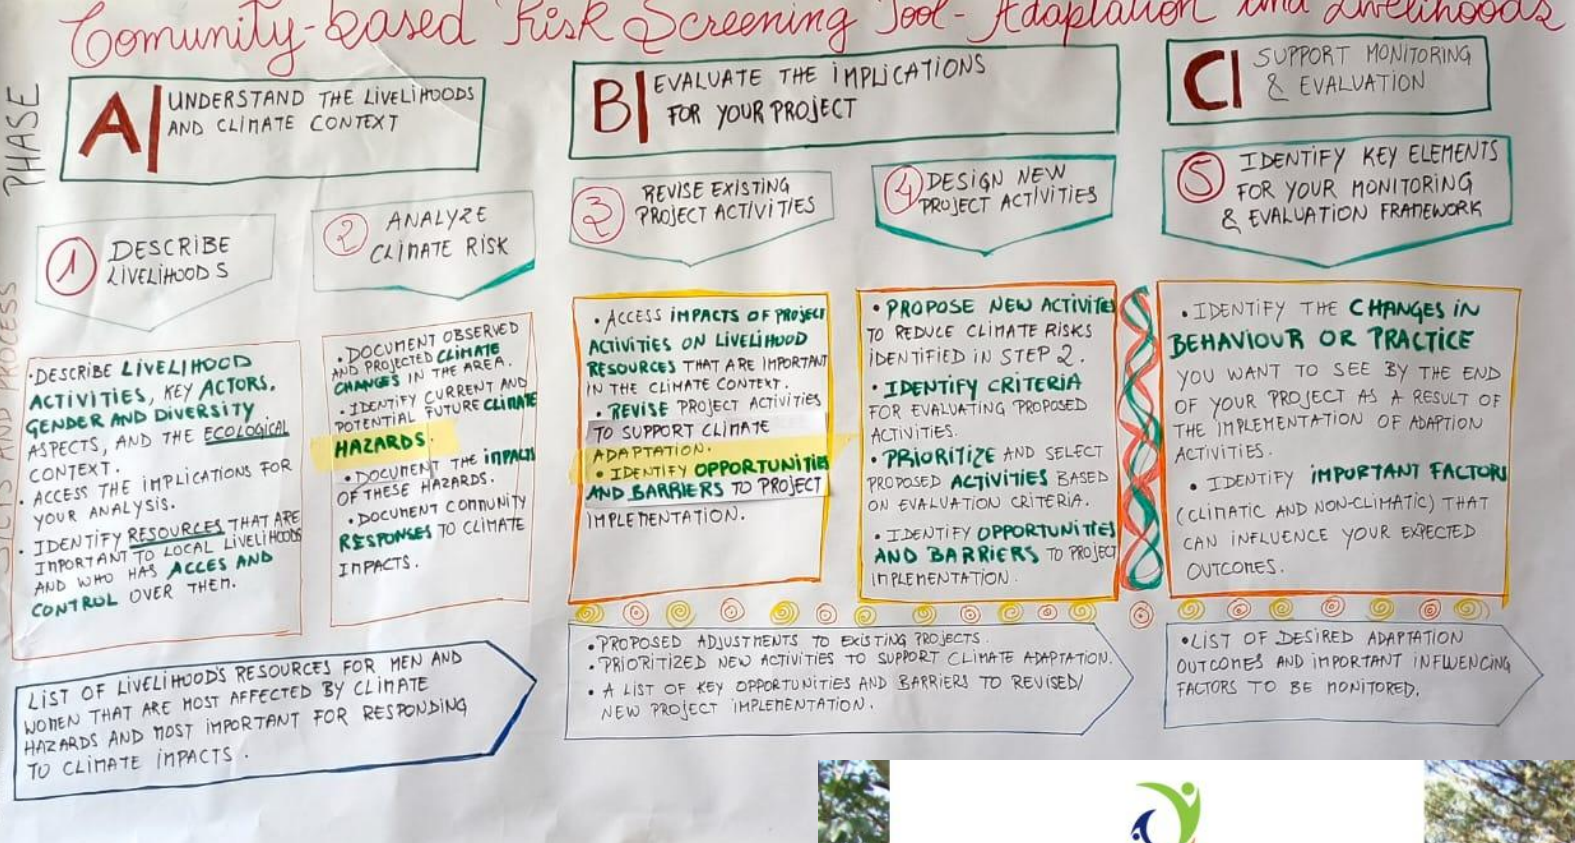 Comunity-based Risk Screening Tool - Adaptation and Livelihoods
PHASE
A| UNDERSTAND THE LIVELIHOODS
AND CLIMATE CONTEXT
B| EVALUATE THE IMPLICATIONS
FOR YOUR PROJECT
C| SUPPORT MONITORING
& EVALUATION
AND PROCESS
1 DESCRIBE
LIVELIHOODS
2 ANALYZE
CLIMATE RISK
3 REVISE EXISTING
PROJECT ACTIVITIES
4 DESIGN NEW
PROJECT ACTIVITIES
5 IDENTIFY KEY ELEMENTS
FOR YOUR MONITORING
& EVALUATION FRAMEWORK
• DESCRIBE LIVELIHOOD
ACTIVITIES, KEY ACTORS,
GENDER AND DIVERSITY
ASPECTS, AND THE ECOLOGICAL
CONTEXT.
• ACCESS THE IMPLICATIONS FOR
YOUR ANALYSIS.
• IDENTIFY RESOURCES THAT ARE
IMPORTANT TO LOCAL LIVELIHOODS
AND WHO HAS ACCES AND
CONTROL OVER THEM.
• DOCUMENT OBSERVED
AND PROJECTED CLIMATE
CHANGES IN THE AREA.
• IDENTIFY CURRENT AND
POTENTIAL FUTURE CLIMATE
HAZARDS.
• DOCUMENT THE IMPACTS
OF THESE HAZARDS.
• DOCUMENT COMMUNITY
RESPONSES TO CLIMATE
IMPACTS.
• ACCESS IMPACTS OF PROJECT
ACTIVITIES ON LIVELIHOOD
RESOURCES THAT ARE IMPORTANT
IN THE CLIMATE CONTEXT.
• REVISE PROJECT ACTIVITIES
TO SUPPORT CLIMATE
ADAPTATION.
• IDENTIFY OPPORTUNITIES
AND BARRIERS TO PROJECT
IMPLEMENTATION.
• PROPOSE NEW ACTIVITIE
TO REDUCE CLIMATE RISKS
IDENTIFIED IN STEP 2.
• IDENTIFY CRITERIA
FOR EVALUATING PROPOSED
ACTIVITIES.
• PRIORITIZE AND SELECT
PROPOSED ACTIVITIES BASED
ON EVALUATION CRITERIA.
• IDENTIFY OPPORTUNITIES
AND BARRIERS TO PROJECT
IMPLEMENTATION.
• IDENTIFY THE CHANGES IN
BEHAVIOUR OR PRACTICE
YOU WANT TO SEE BY THE END
OF YOUR PROJECT AS A RESULT OF
THE IMPLEMENTATION OF ADAPTION
ACTIVITIES.
• IDENTIFY IMPORTANT FACTORS
(CLIMATIC AND NON-CLIMATIC) THAT
CAN INFLUENCE YOUR EXPECTED
OUTCOMES.
LIST OF LIVELIHOOD'S RESOURCES FOR MEN AND
WOMEN THAT ARE MOST AFFECTED BY CLIMATE
HAZARDS AND MOST IMPORTANT FOR RESPONDING
TO CLIMATE IMPACTS.
• PROPOSED ADJUSTMENTS TO EXISTING PROJECTS.
• PRIORITIZED NEW ACTIVITIES TO SUPPORT CLIMATE ADAPTATION.
• A LIST OF KEY OPPORTUNITIES AND BARRIERS TO REVISED/
NEW PROJECT IMPLEMENTATION.
• LIST OF DESIRED ADAPTATION
OUTCOMES AND IMPORTANT INFLUENCING
FACTORS TO BE MONITORED.